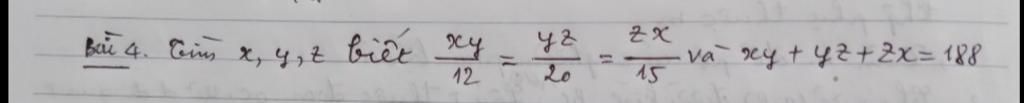 Bài 4. Tìm x, y, z biết xy/12 = yz/20 = zx/15 và xy + yz + zx = 188